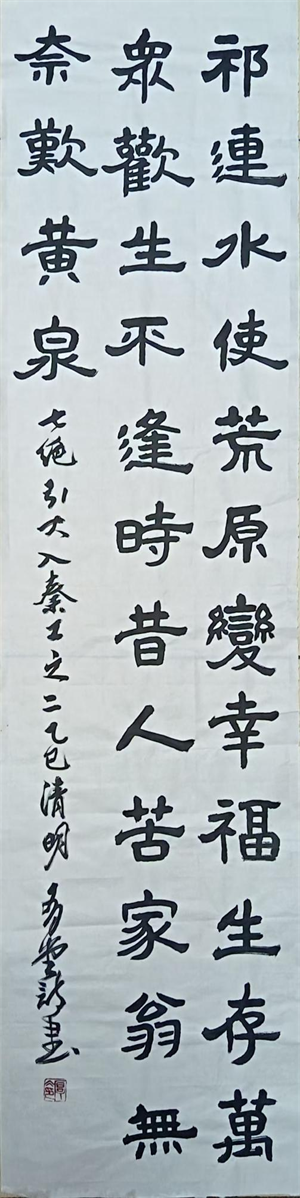 祁連水使荒原變幸福生存萬
眾歡生不逢時昔人苦家翁無
奈歎黄泉
七絶引大入秦工之二乙巳清明